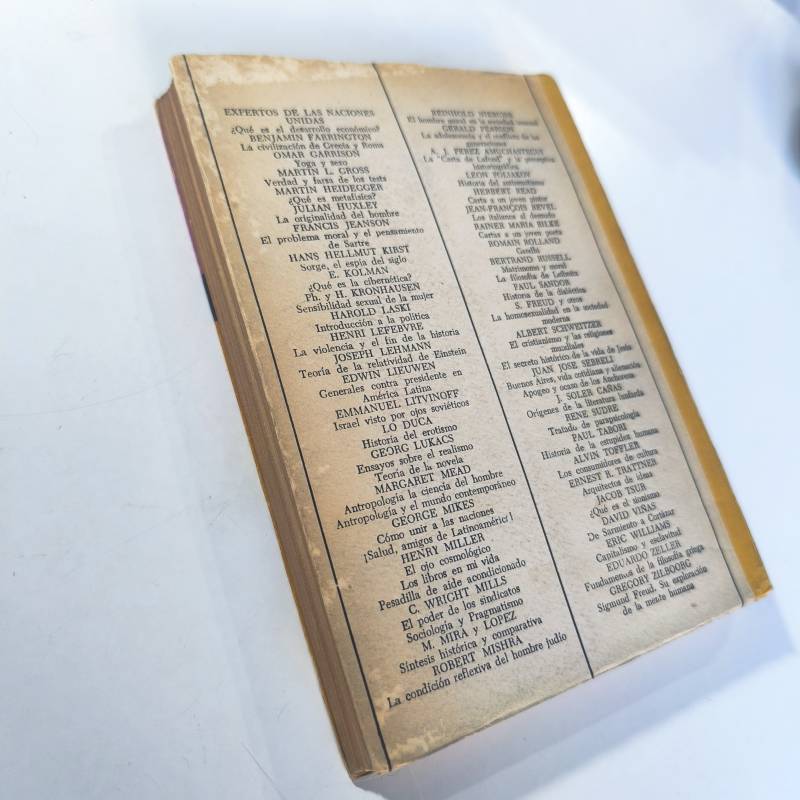 EXPERTOS DE LAS NACIONES
UNIDAS
¿Qué es el desarrollo económico?
BENJAMIN FARRINGTON
La civilización de Grecia y Roma
OMAR GARRISON
Yoga y sexo
MARTIN L. GROSS
Verdad y farsa de los tests
MARTIN HEIDEGGER
¿Qué es metafísica?
JULIAN HUXLEY
La originalidad del hombre
FRANCIS JEANSON
El problema moral y el pensamiento
de Sartre
HANS HELLMUT KIRST
Sorge, el espía del siglo
E. KOLMAN
¿Qué es la cibernética?
Ph. y H. KRONHAUSEN
Sensibilidad sexual de la mujer
HAROLD LASKI
Introducción a la política
HENRI LEFEBVRE
La violencia y el fin de la historia
JOSEPH LEHMANN
Teoría de la relatividad de Einstein
EDWIN LIEUWEN
Generales contra presidente en
América Latina
EMMANUEL LITVINOFF
Israel visto por ojos soviéticos
LO DUCA
Historia del erotismo
GEORG LUKACS
Ensayos sobre el realismo
Teoría de la novela
MARGARET MEAD
Antropología la ciencia del hombre
Antropología y el mundo contemporáneo
GEORGE MIKES
Cómo unir a las naciones
¡Salud, amigos de Latinoamérica!
HENRY MILLER
El ojo cosmológico
Los libros en mi vida
Pesadilla de aide acondicionado
C. WRIGHT MILLS
El poder de los sindicatos
Sociología y Pragmatismo
M. MIRA y LOPEZ
Síntesis histórica y comparativa
ROBERT MISHRA
La condición reflexiva del hombre judío
REINHOLD
El hombre moral en la sociedad inmoral
GERALD PEARSON
La adolescencia y el conflicto de las
generaciones
A. J. PEREZ AMUCHASTEGUI
La "Carta de Lafond" y la preceptiva
historiográfica
LEON POLIAKOV
Historia del antisemitismo
HERBERT READ
Carta a un joven pintor
JEAN-FRANÇOIS REVEL
Los italianos al desnudo
RAINER MARIA RILKE
Cartas a un joven poeta
ROMAIN ROLLAND
Gandhi
BERTRAND RUSSELL
Matrimonio y moral
La filosofía de Leibnitz
PAUL SANDOR
Historia de la dialéctica
S. FREUD y otros
La homosexualidad en la sociedad
moderna
ALBERT SCHWEITZER
El cristianismo y las religiones
mundiales
El secreto histórico de la vida de Jesús
JUAN JOSE SEBRELI
Buenos Aires, vida cotidiana y alienación
Apogeo y ocaso de los Anchorena
J. SOLER CAÑAS
Orígenes de la literatura lunfarda
RENE SUDRE
Tratado de parapsicología
PAUL TABORI
Historia de la estupidez humana
ALVIN TOFFLER
Los consumidores de cultura
ERNEST R. TRATTNER
Arquitectos de ideas
JACOB TSUR
¿Qué es el sionismo
DAVID VIÑAS
De Sarmiento a Cortázar
ERIC WILLIAMS
Capitalismo y esclavitud
EDUARDO ZELLER
Fundamentos de la filosofía griega
GREGORY ZILBOORG
Sigmund Freud. Su exploración
de la mente humana